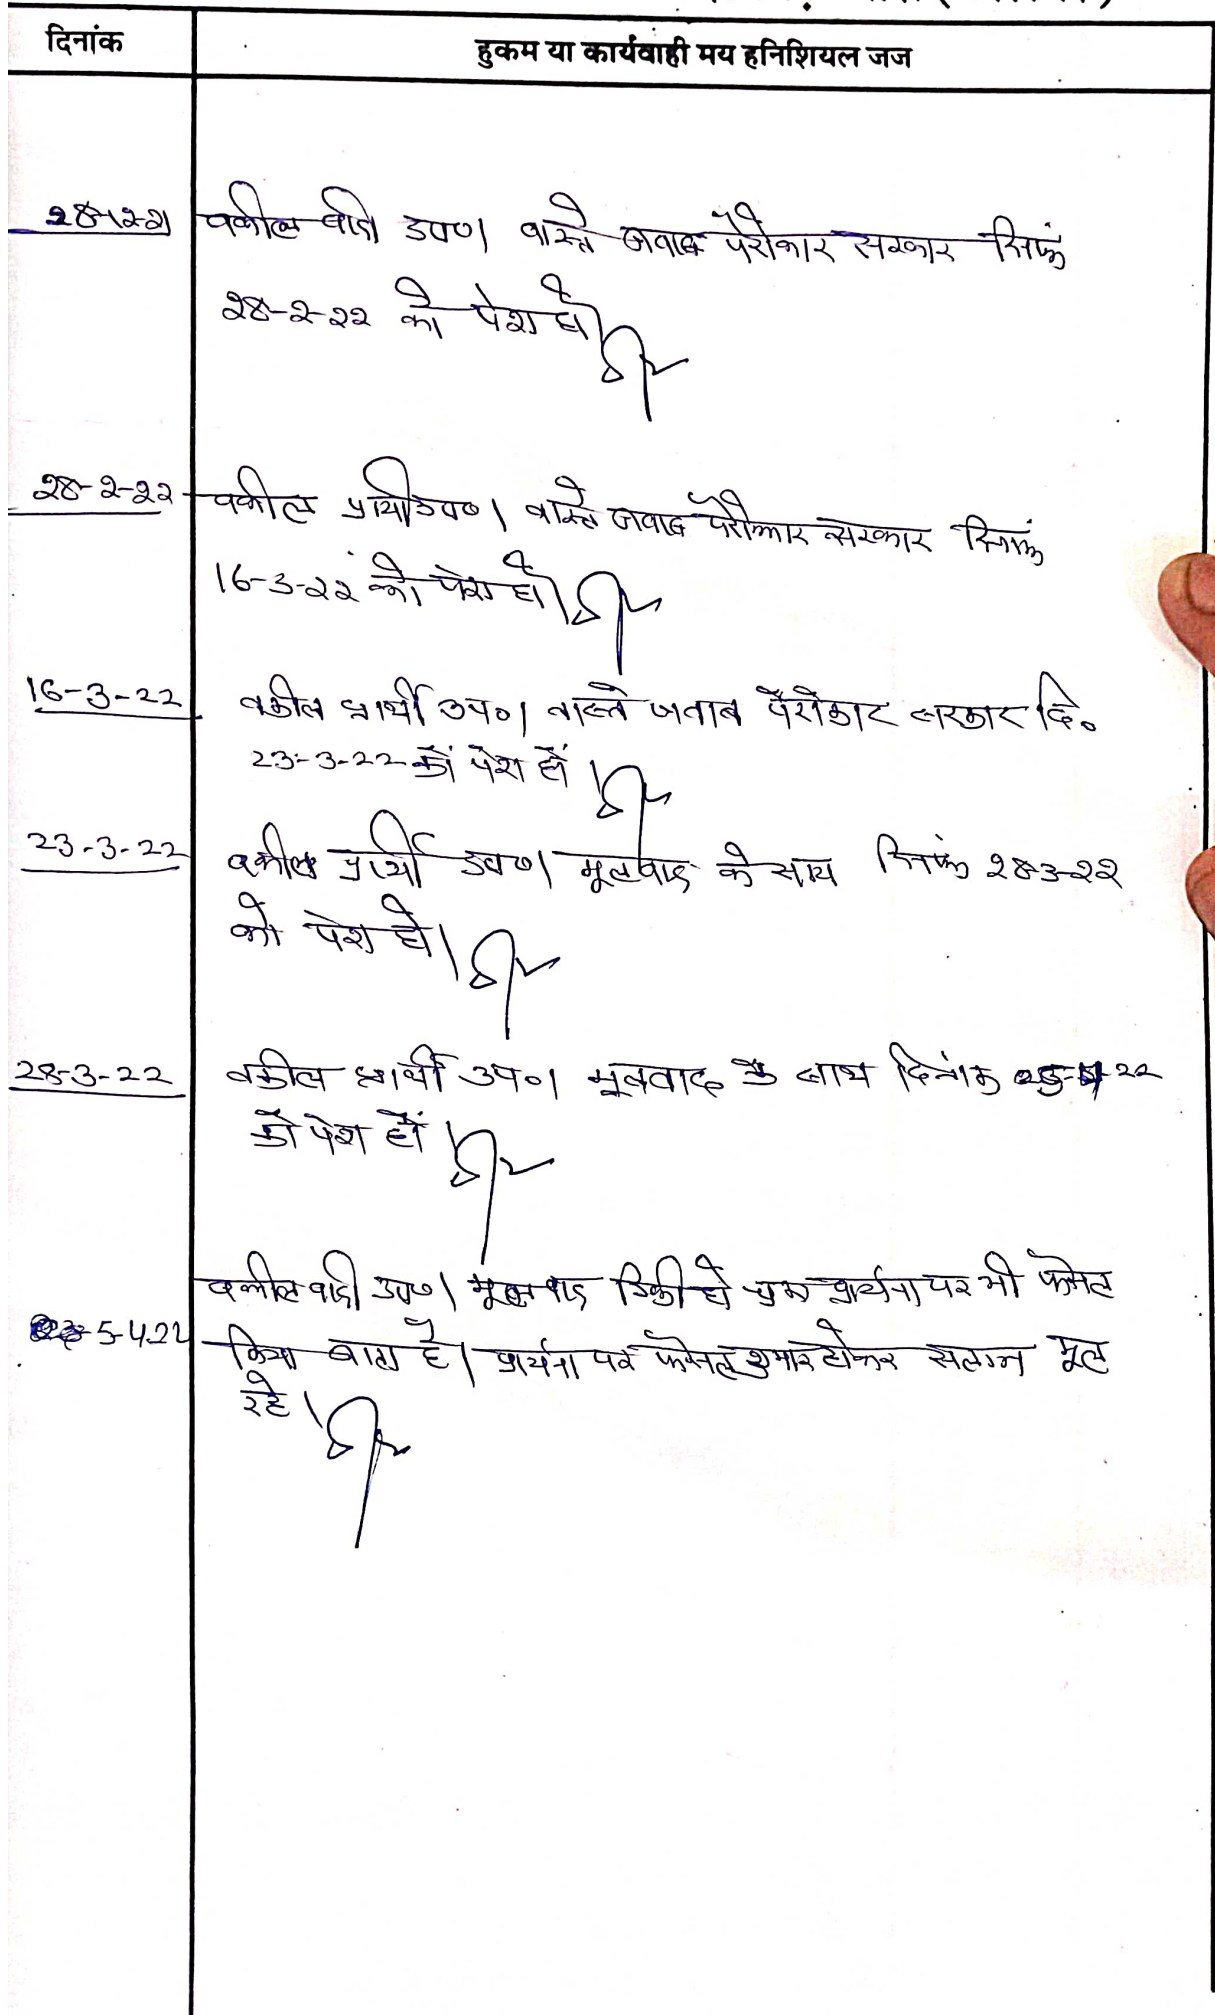 दिनांक
हुकम या कार्यवाही मय हनिशियल जज
28-12-21 वकील वादी उप०। वास्ते जवाब पैरोकार सरकार दिनांक
28-2-22 को पेश हो।
28-2-22 वकील प्रार्थी उप०। वास्ते जवाब पैरोकार सरकार दिनांक
16-3-22 को पेश हो।
16-3-22 वकील प्रार्थी उप०। वास्ते जवाब पैरोकार सरकार दि०
23-3-22 को पेश हों
23-3-22 वकील प्रार्थी उप०। मूलवाद के साथ दिनांक 28-3-22
को पेश हो।
28-3-22 वकील प्रार्थी उप०। मूलवाद के साथ दिनांक 5-4-22
को पेश हों
वकील वादी उप०। मूल वाद डिक्री होने प्रार्थना पत्र भी फैसल
5-4-22 किया जाता है। प्रार्थना पत्र फैसल शुमार होकर संलग्न मूल
रहे।